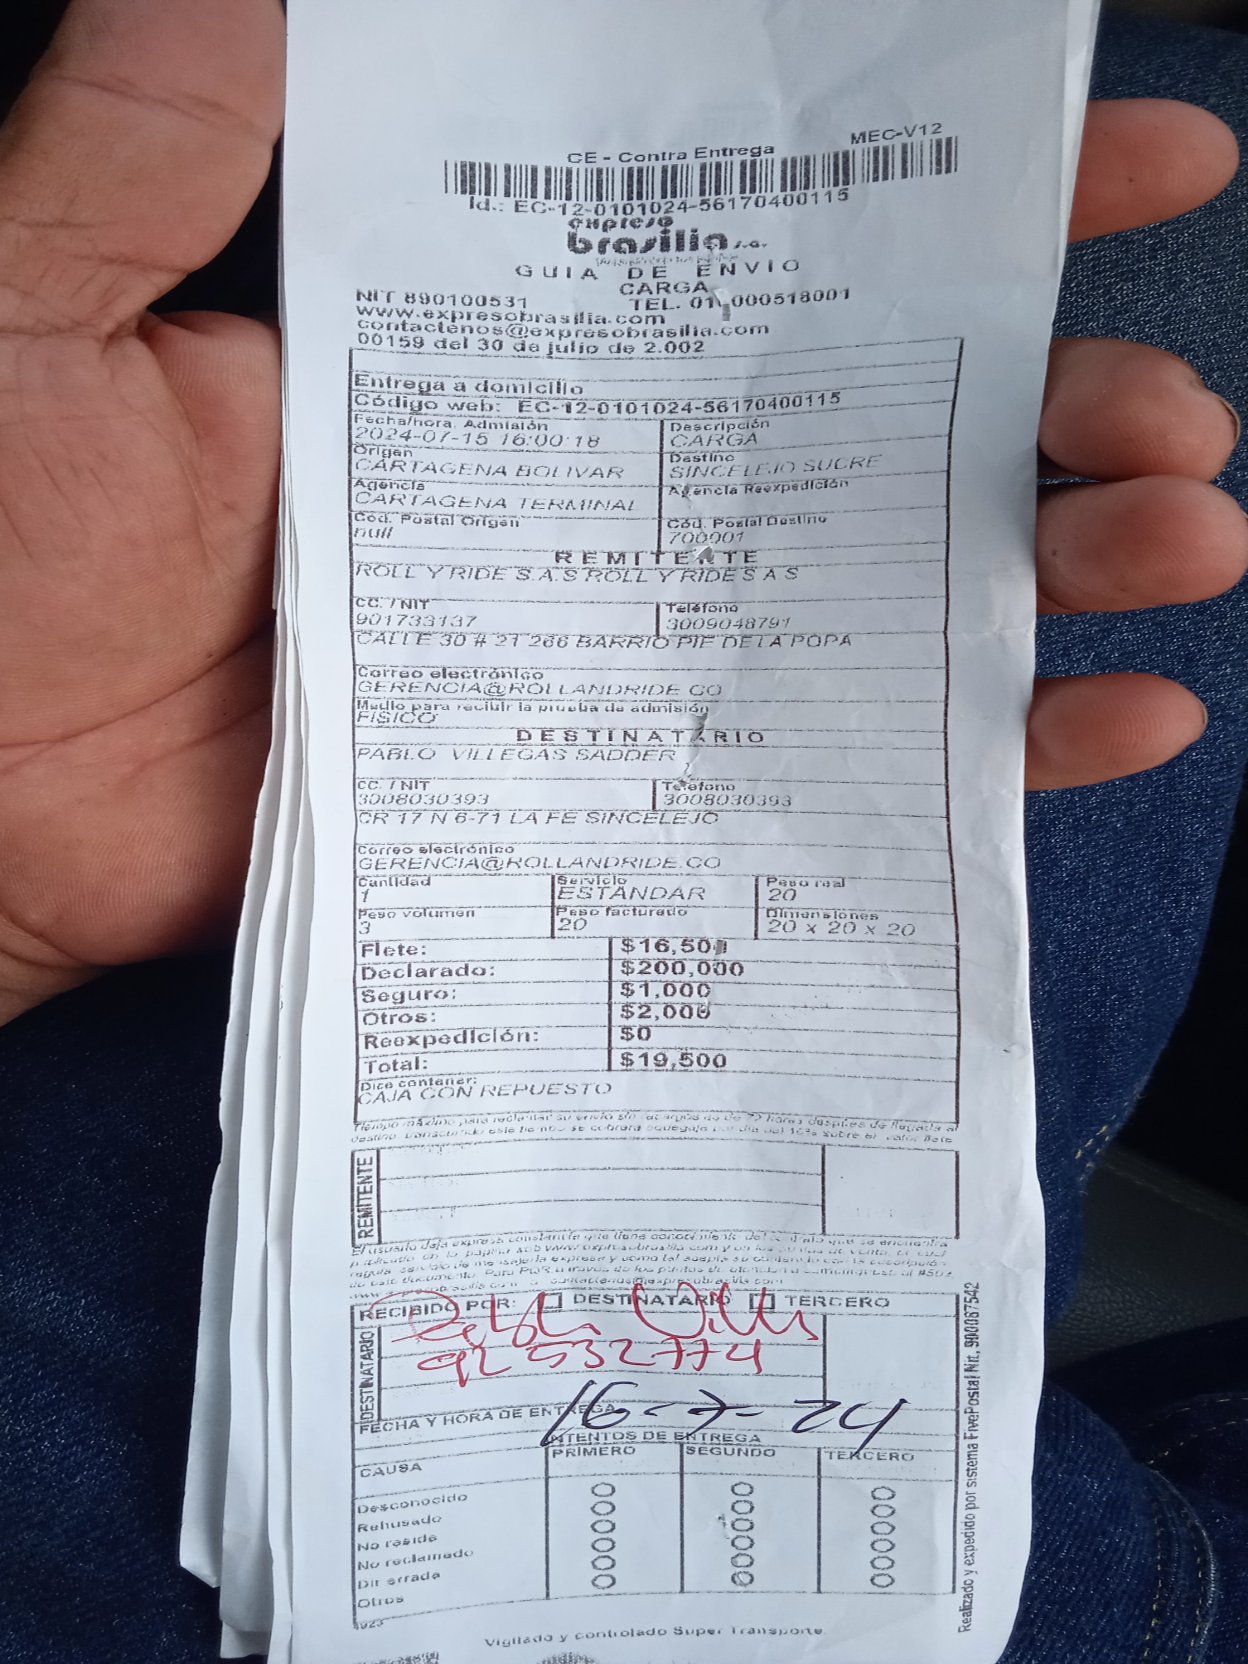 CE - Contra Entrega
MEC-V12
Id.: EC-12-0101024-56170400115
expreso
brasilia s.a.
GUIA DE ENVIO
CARGA
NIT 890100531 TEL. 01 000518001
www.expresobrasilia.com
contactenos@expresobrasilia.com
00159 del 30 de julio de 2.002
Entrega a domicilio
Código web: EC-12-0101024-56170400115
Fecha/hora Admisión Descripción
2024-07-15 16:00:18 CARGA
Origen Destino
CARTAGENA BOLIVAR SINCELEJO SUCRE
Agencia Agencia Reexpedición
CARTAGENA TERMINAL
Cód. Postal Origen Cód. Postal Destino
null 700001
REMITENTE
ROLL Y RIDE S.A.S ROLL Y RIDE S A S
CC. / NIT Teléfono
901733137 3009048791
CALLE 30 # 21 266 BARRIO PIE DE LA POPA
Correo electrónico
GERENCIA@ROLLANDRIDE.CO
Medio para recibir la prueba de admisión
FISICO
DESTINATARIO
PABLO VILLEGAS SADDER
CC. / NIT Teléfono
3008030393 3008030393
CR 17 N 6-71 LA FE SINCELEJO
Correo electrónico
GERENCIA@ROLLANDRIDE.CO
Cantidad Servicio Peso real
1 ESTANDAR 20
Peso volumen Peso facturado Dimensiones
3 20 20 x 20 x 20
Flete: $16,500
Declarado: $200,000
Seguro: $1,000
Otros: $2,000
Reexpedición: $0
Total: $19,500
Dice contener:
CAJA CON REPUESTO
Tiempo máximo para reclamar su envío sin recargos de 72 horas después de llegada al
REMITENTE
RECIBIDO POR: DESTINATARIO TERCERO
DESTINATARIO
92532774
FECHA Y HORA DE ENTREGA 16-7-24
INTENTOS DE ENTREGA
CAUSA PRIMERO SEGUNDO TERCERO
Desconocido
Rehusado
No reside
No reclamado
Dir errada
Otros
Vigilado y controlado Super Transporte.
Realizado y expedido por sistema FivePostal Nit. 900087542